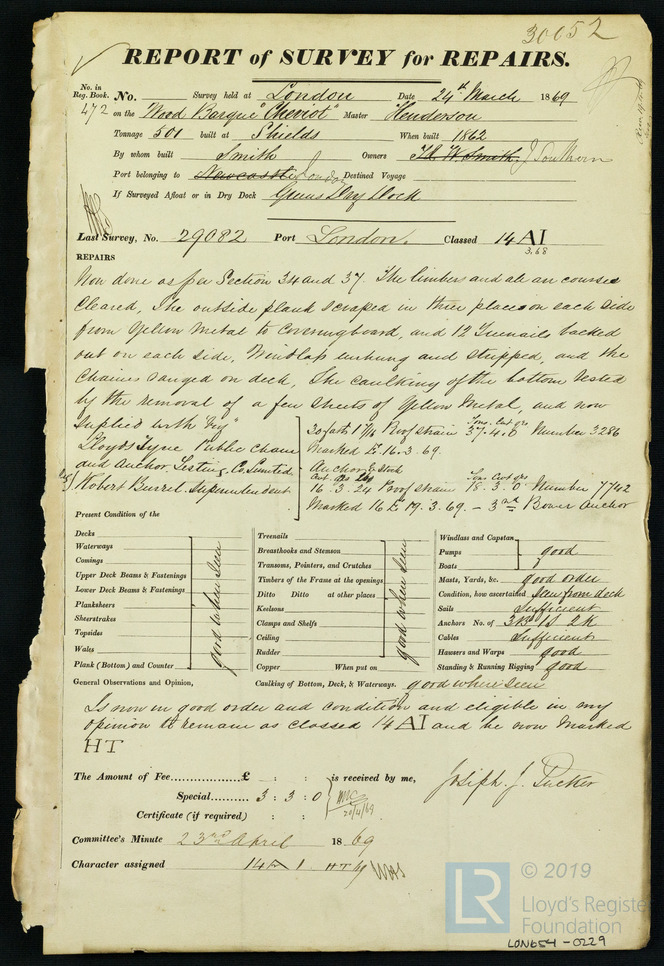 30652
REPORT of SURVEY for REPAIRS.
No. in
Reg. Book.
No. Survey held at London Date 24th March 1869
472 on the Wood Barque "Cheviot" Master Henderson
Tonnage 501 built at Shields When built 1862
By whom built Smith Owners T & W Smith J Southern
Port belonging to Newcastle London Destined Voyage
If Surveyed Afloat or in Dry Dock Greens Dry Dock
Last Survey, No. 29082 Port London. Classed 14 A1
3.68
REPAIRS
Now done as per Section 34 and 37. The limbers and air courses
Cleared, The outside plank scraped in three places on each side
from Yellow Metal to Coveringboard, and 12 Treenails backed
out on each side, Windlass unhung and stripped, and the
Chains ranged on deck, The caulking of the bottom tested
by the removal of a few sheets of Yellow Metal, and now
supplied with
Tons. Cwt qrs
30 faths 1 7/16 Proof strain 37.4.0 Number 3286
Lloyds Tyne Public Chain
Marked 16.3.69.
and Anchor Testing Co. Limited
Anchor & Stock
Cwt. Qrs Lbs Tons Cwt qrs
Robert Burrel. Superintendent
16.3.24 Proof strain 18.3.0 Number 7742
Marked 19.3.69. - 3rd Bower Anchor
Present Condition of the
Decks
Waterways
Comings
Upper Deck Beams & Fastenings
Lower Deck Beams & Fastenings
Planksheers
Sheerstrakes
Topsides
Wales
Plank (Bottom) and Counter
good when seen
Treenails
Breasthooks and Stemson
Transoms, Pointers, and Crutches
Timbers of the Frame at the openings
Ditto Ditto at other places
Keelsons
Clamps and Shelfs
Ceiling
Rudder
good when seen
Copper When put on
Windlass and Capstan
Pumps good
Boats
Masts, Yards, &c. good order
Condition, how ascertained Saw from deck
Sails Sufficient
Anchors No. of 3B 1S 2K
Cables Sufficient
Hawsers and Warps good
Standing & Running Rigging good
General Observations and Opinion,
Caulking of Bottom, Deck, & Waterways. good where seen
Is now in good order and condition and eligible in my
opinion to remain as classed 14 A1 and be now Marked
HT
The Amount of Fee £ : : is received by me,
Special 3 : 3 : 0
20/4/69
Joseph J. Tucker
Certificate (if required) : :
Committee's Minute 23rd April 1869
Character assigned 14 A 1. HT 69
LR
© 2019
Lloyd's Register
Foundation
LON654-0229